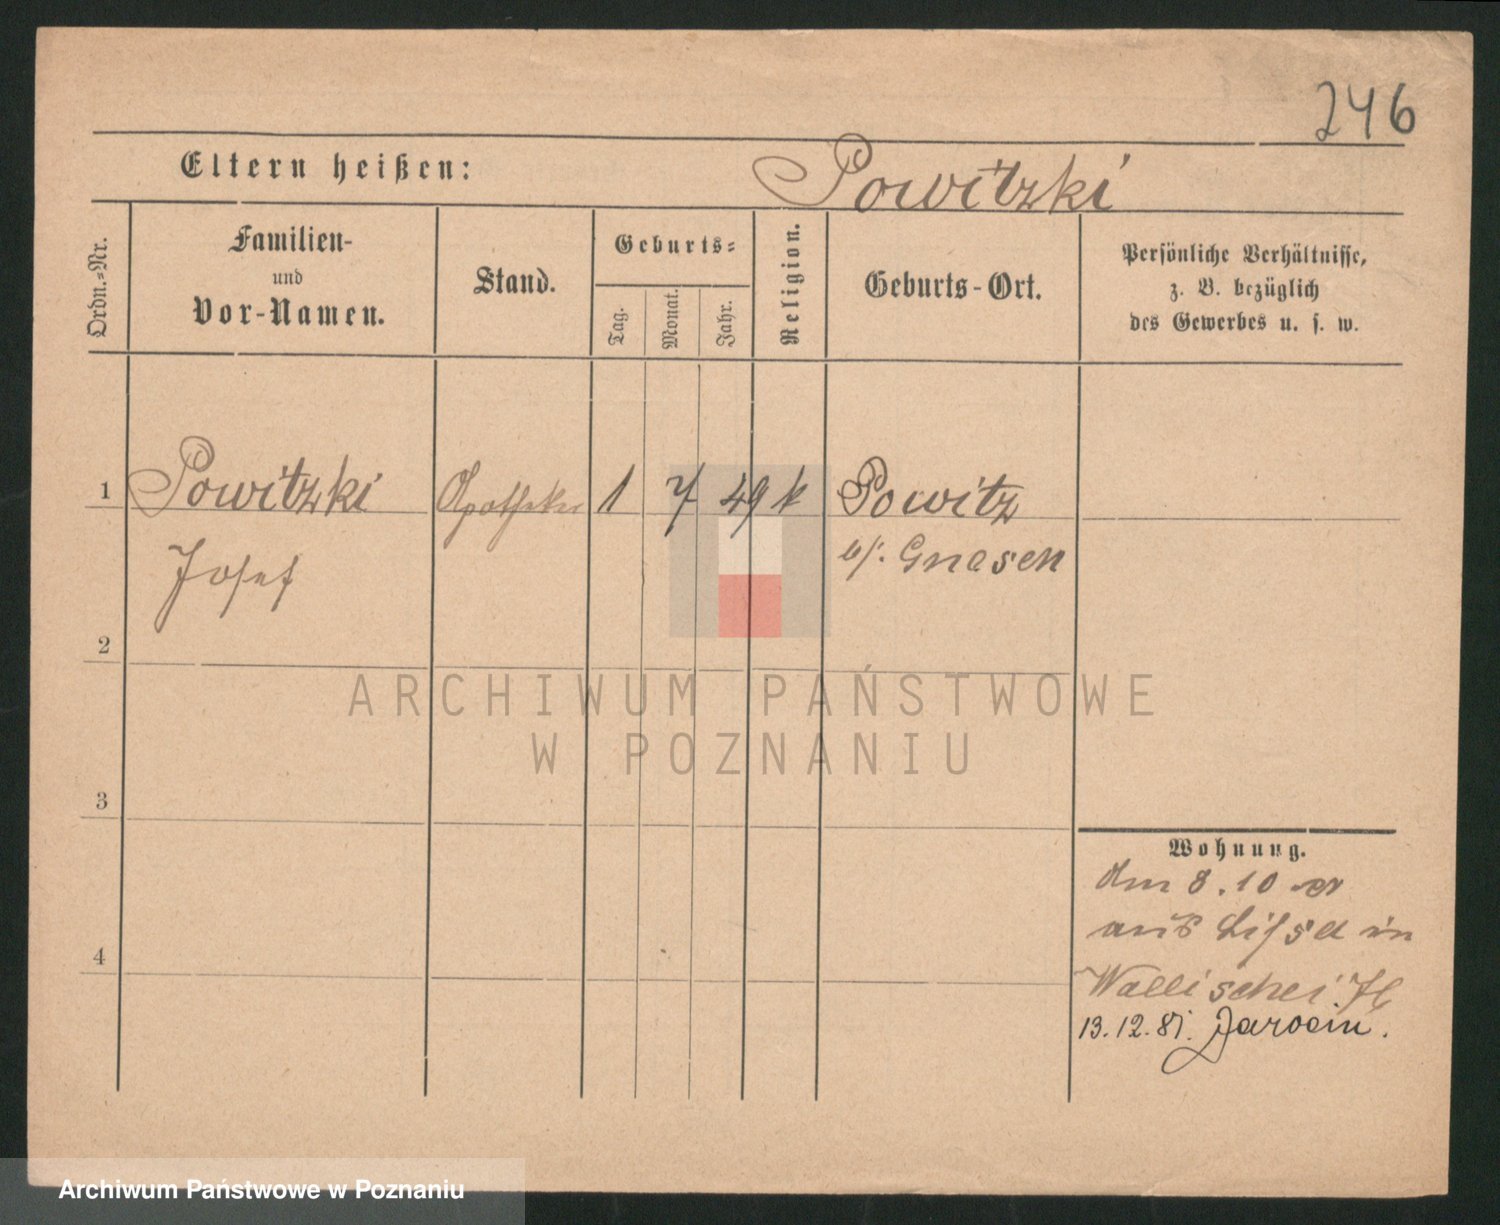 246
Eltern heißen: Powitzki
Ordn.-Nr.
Familien-
und
Vor-Namen.
Stand.
Geburts-
Tag.
Monat.
Jahr.
Religion.
Geburts-Ort.
Persönliche Verhältnisse,
z. B. bezüglich
des Gewerbes u. s. w.
1 Powitzki Apotheker 1 7 49 k Powitz
Josef b/. Gnesen
2
ARCHIWUM PAŃSTWOWE
W POZNANIU
3
Wohnung.
8.10 er
aus Lissa in
4
Wallischei
13.12.81. Jarocin.
Archiwum Państwowe w Poznaniu